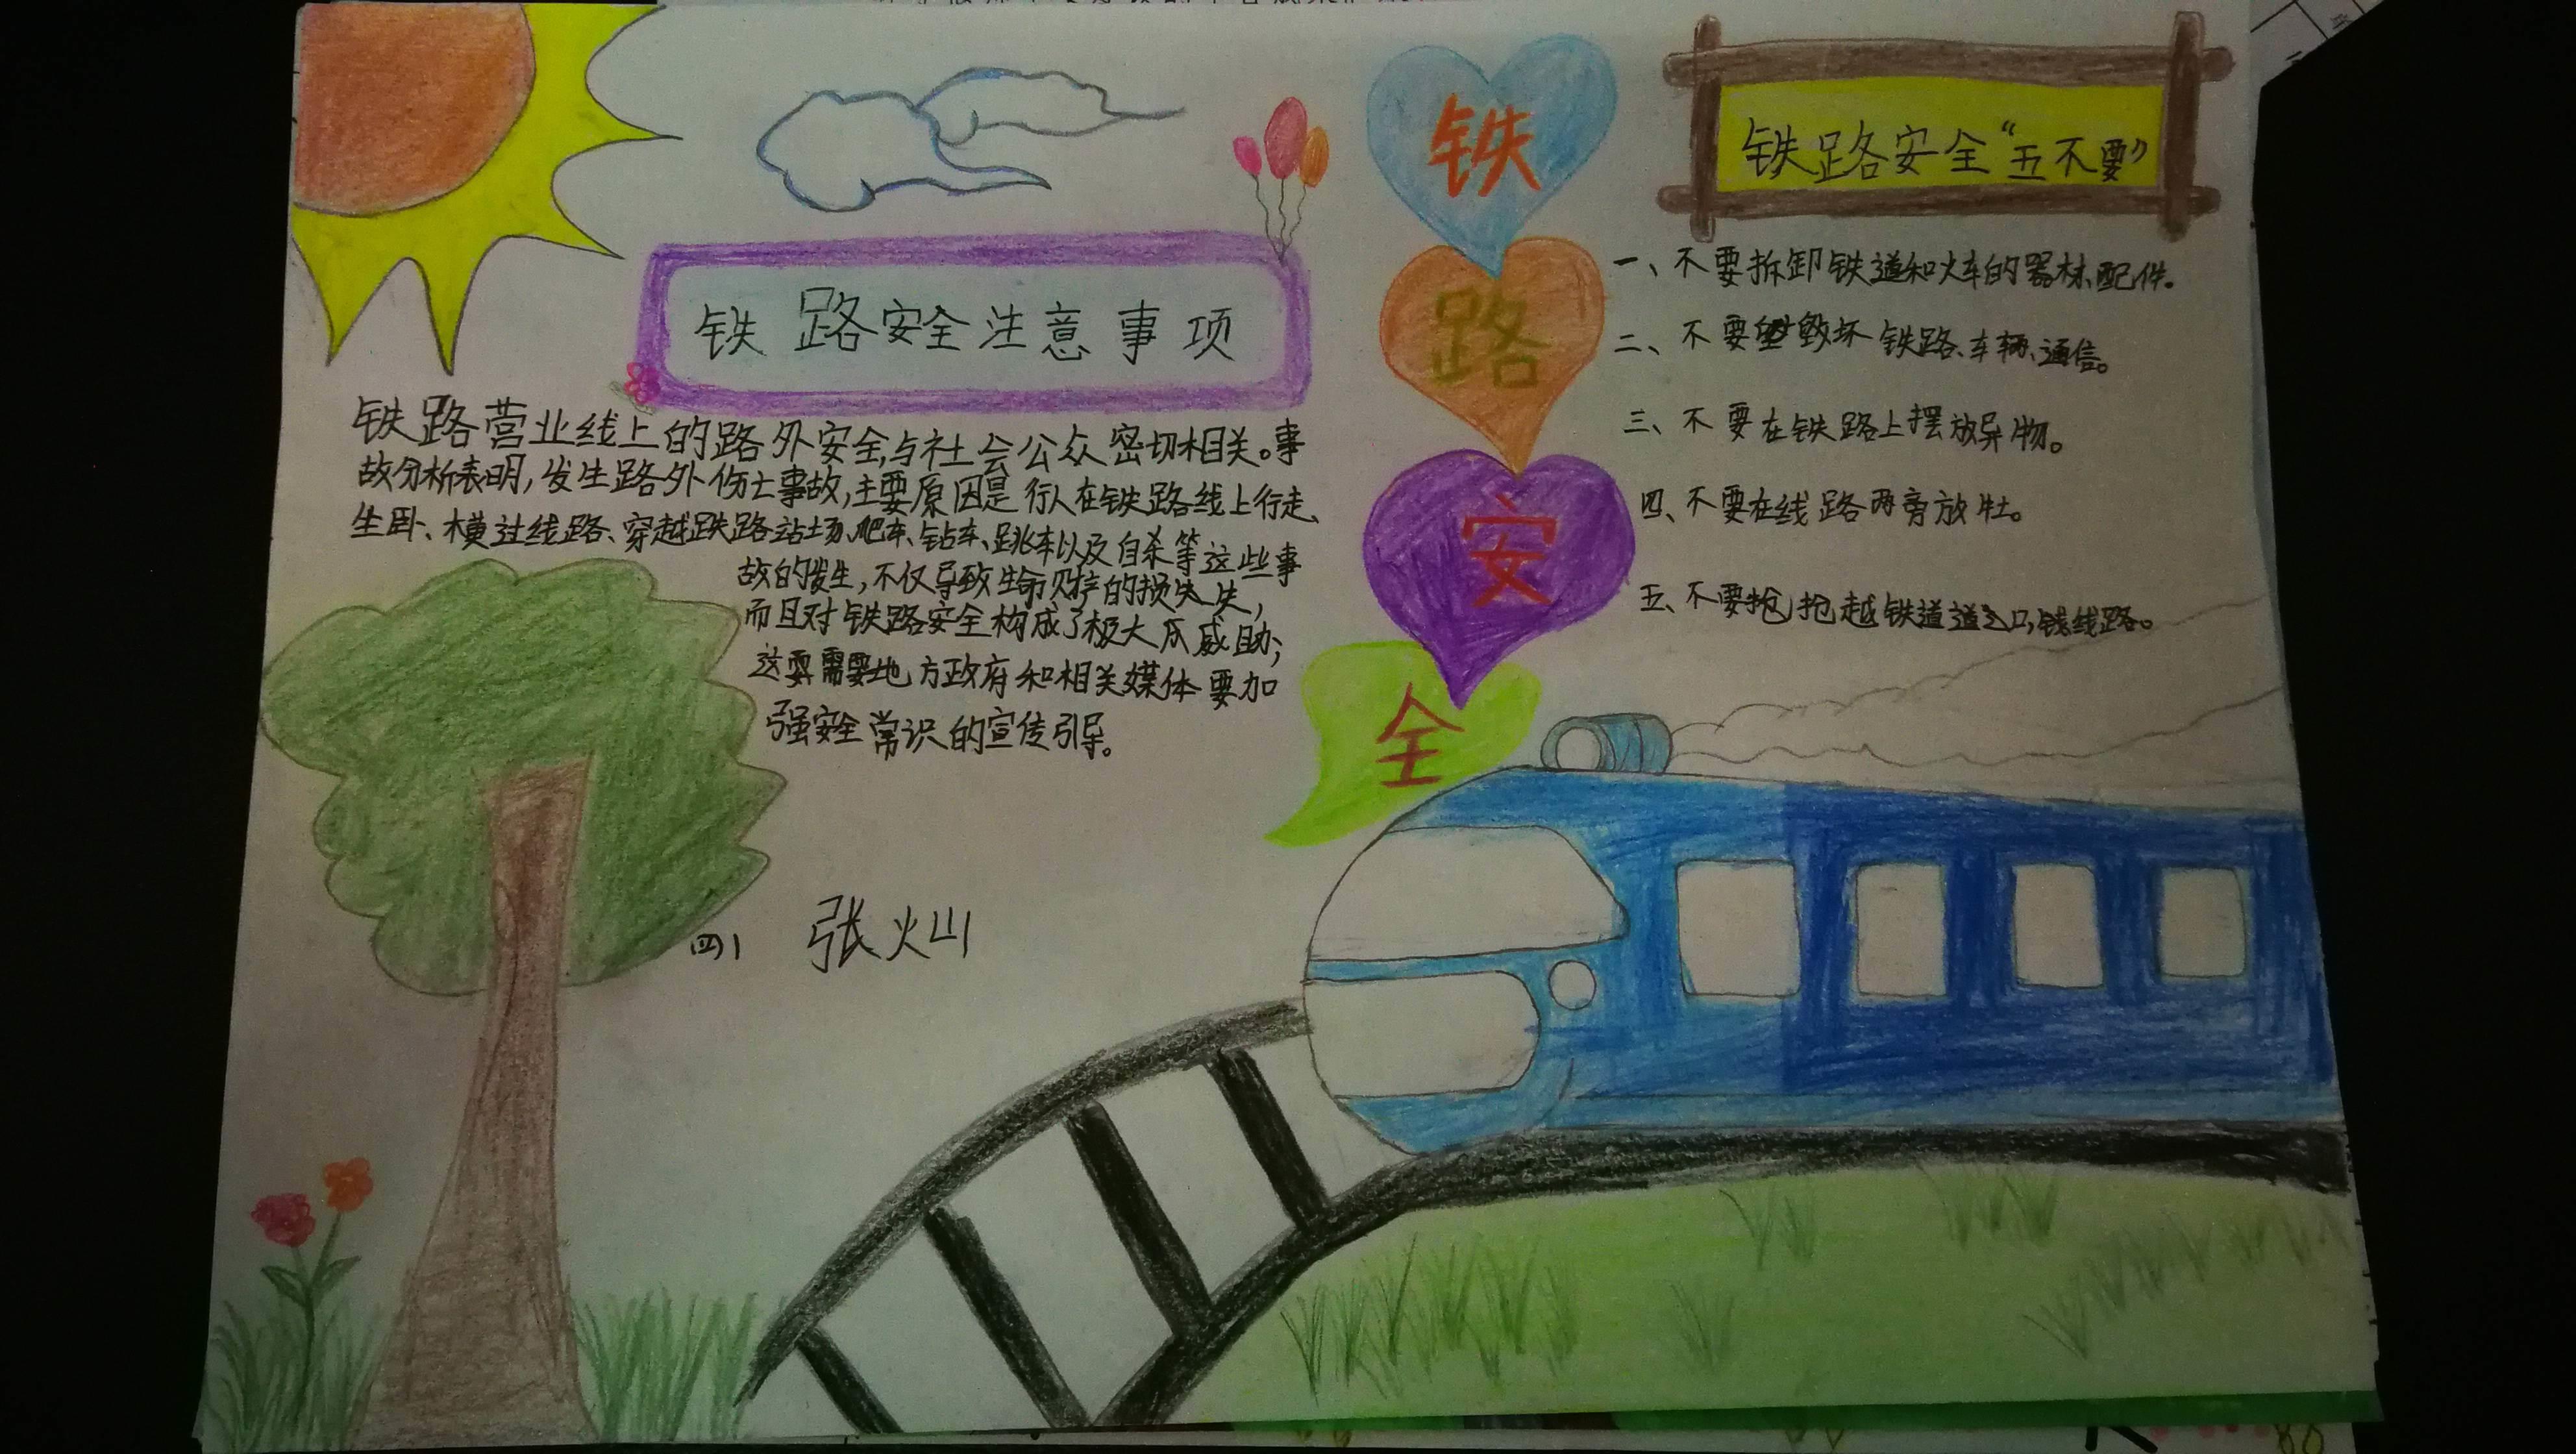 铁路安全
铁路安全注意事项
铁路营业线上的路外安全与社会公众密切相关。事
故分析表明,发生路外伤亡事故,主要原因是行人在铁路线上行走、
坐卧、横过线路、穿越铁路站场、爬车、钻车、跳车以及自杀等这些事
故的发生,不仅导致生命财产的损失失,
而且对铁路安全构成了极大威助;
这要需要地方政府和相关媒体要加
强安全常识的宣传引导。
四1 张火山
铁路安全“五不要”
一、不要拆卸铁道和火车的器材、配件。
二、不要毁坏铁路、车辆、通信。
三、不要在铁路上摆放异物。
四、不要在线路两旁放牡。
五、不要抢越铁道道口,线路。